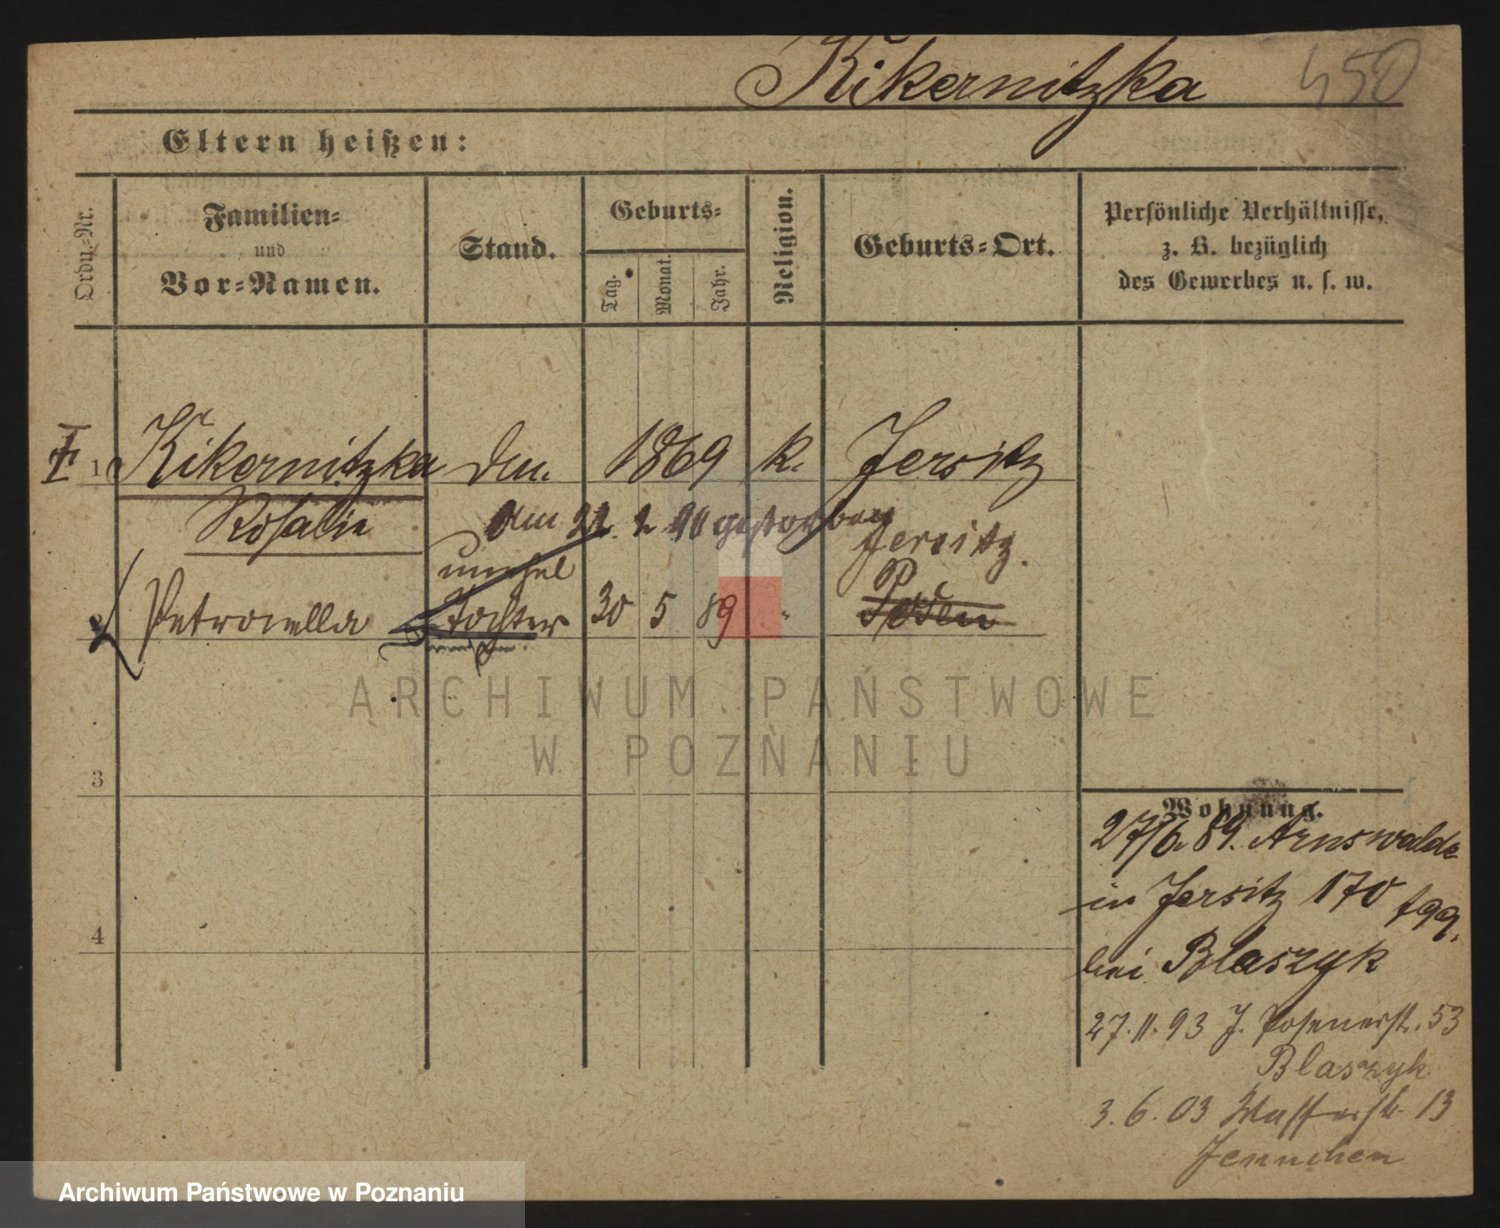 Kikernitzka 450
Eltern heißen:
Ordn.-Nr.
Familien-
und
Vor-Namen.
Stand.
Geburts-
Tag.
Monat.
Jahr.
Religion.
Geburts-Ort.
Persönliche Verhältnisse,
z. B. bezüglich
des Gewerbes u. s. w.
1 Kikernitzka 1869 k. Jersitz
Rosalie
am 22. 2. 90 gestorben
Jersitz.
unehel
2 Petronella Tochter 30 5 89 Posen
3
4
Wohnung.
27/6. 89. Arnswalde
in Jersitz 170
bei Blaszyk
27.11.93 J. Posenerst. 53
Blaszyk
3.6.03 13
ARCHIWUM PAŃSTWOWE
W POZNANIU
Archiwum Państwowe w Poznaniu